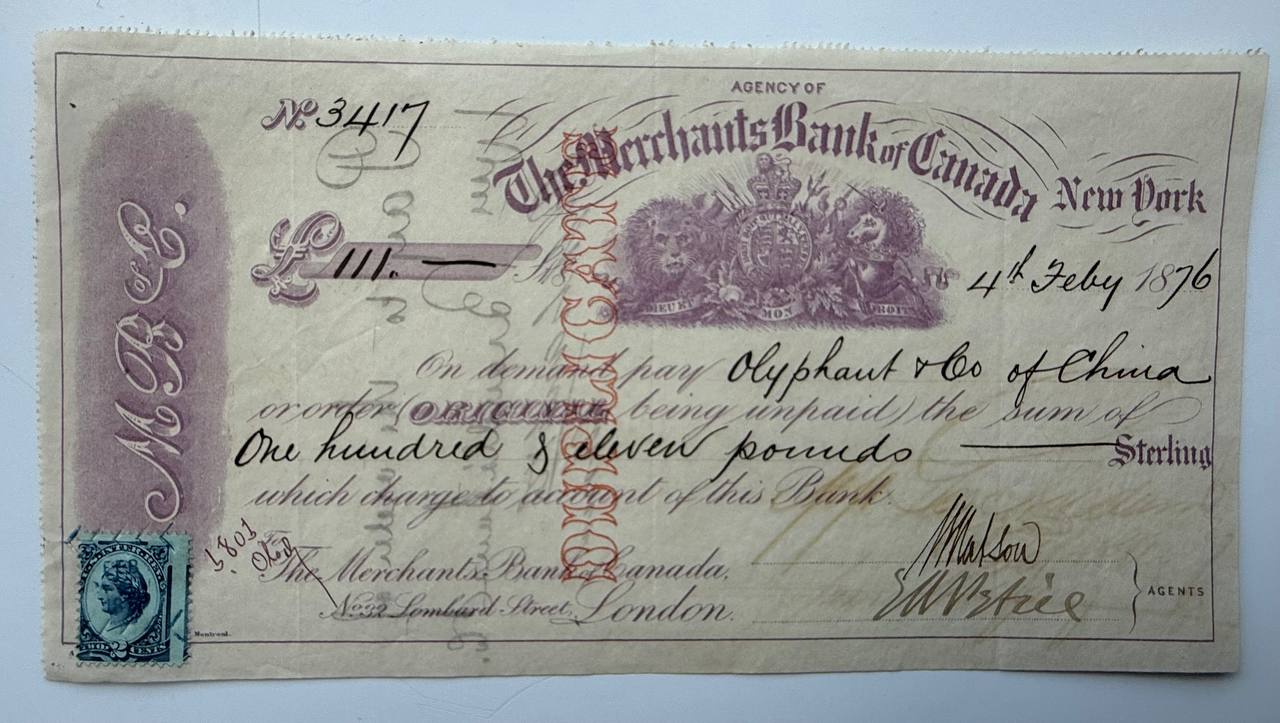 No. 3417
AGENCY OF
The Merchants Bank of Canada New York
£ 111. —
DIEU ET MON DROIT
4th Feby 1876
On demand pay Olyphant & Co of China
or order (ORIGINAL being unpaid) the sum of
One hundred & eleven pounds Sterling
which charge to account of this Bank.
To
The Merchants Bank of Canada,
No 32 Lombard Street, London.
AGENTS
DUPLICATE
M B of C.
U.S. INTER. REV.
TWO 2 CENTS
Montreal.